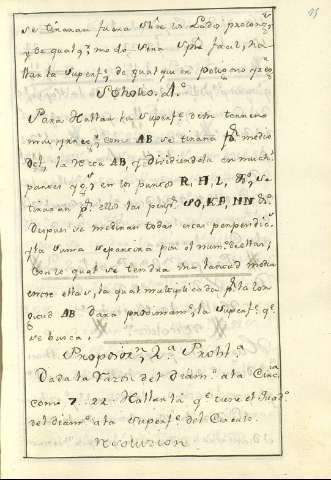 se tiraran fuera sobre los Lados prolong.s
y de qualq.r modo sera spre facil, ha
llar la superf.e de qualquier poligono
Scholio. 1.º
Para Hallar la superf.e de un terreno
mui como AB se tirara p.r medio
del, la recta AB, q dividiendola en much.s
partes y.s en los puntos R, H, L, &.ª, se
tiraran p.r ellos las perp.s SO, KP, NN &.ª
Despues se mediran todas estas perpendic.s
y la suma se partira por el num.º de ellas,
con lo qual se tendra una latitud media
entre ellas, la qual multiplicada p.r la lon
gitud AB dara proximam.te la superf.e q.e
se busca.
Proposic.n 2.ª Probl.ª
Dada la razon del diam.º a la Circ.ª
como 7..22 Hallar la q.e tiene el quad.º
del diam.º a la superf.e del Circulo.
Resolucion